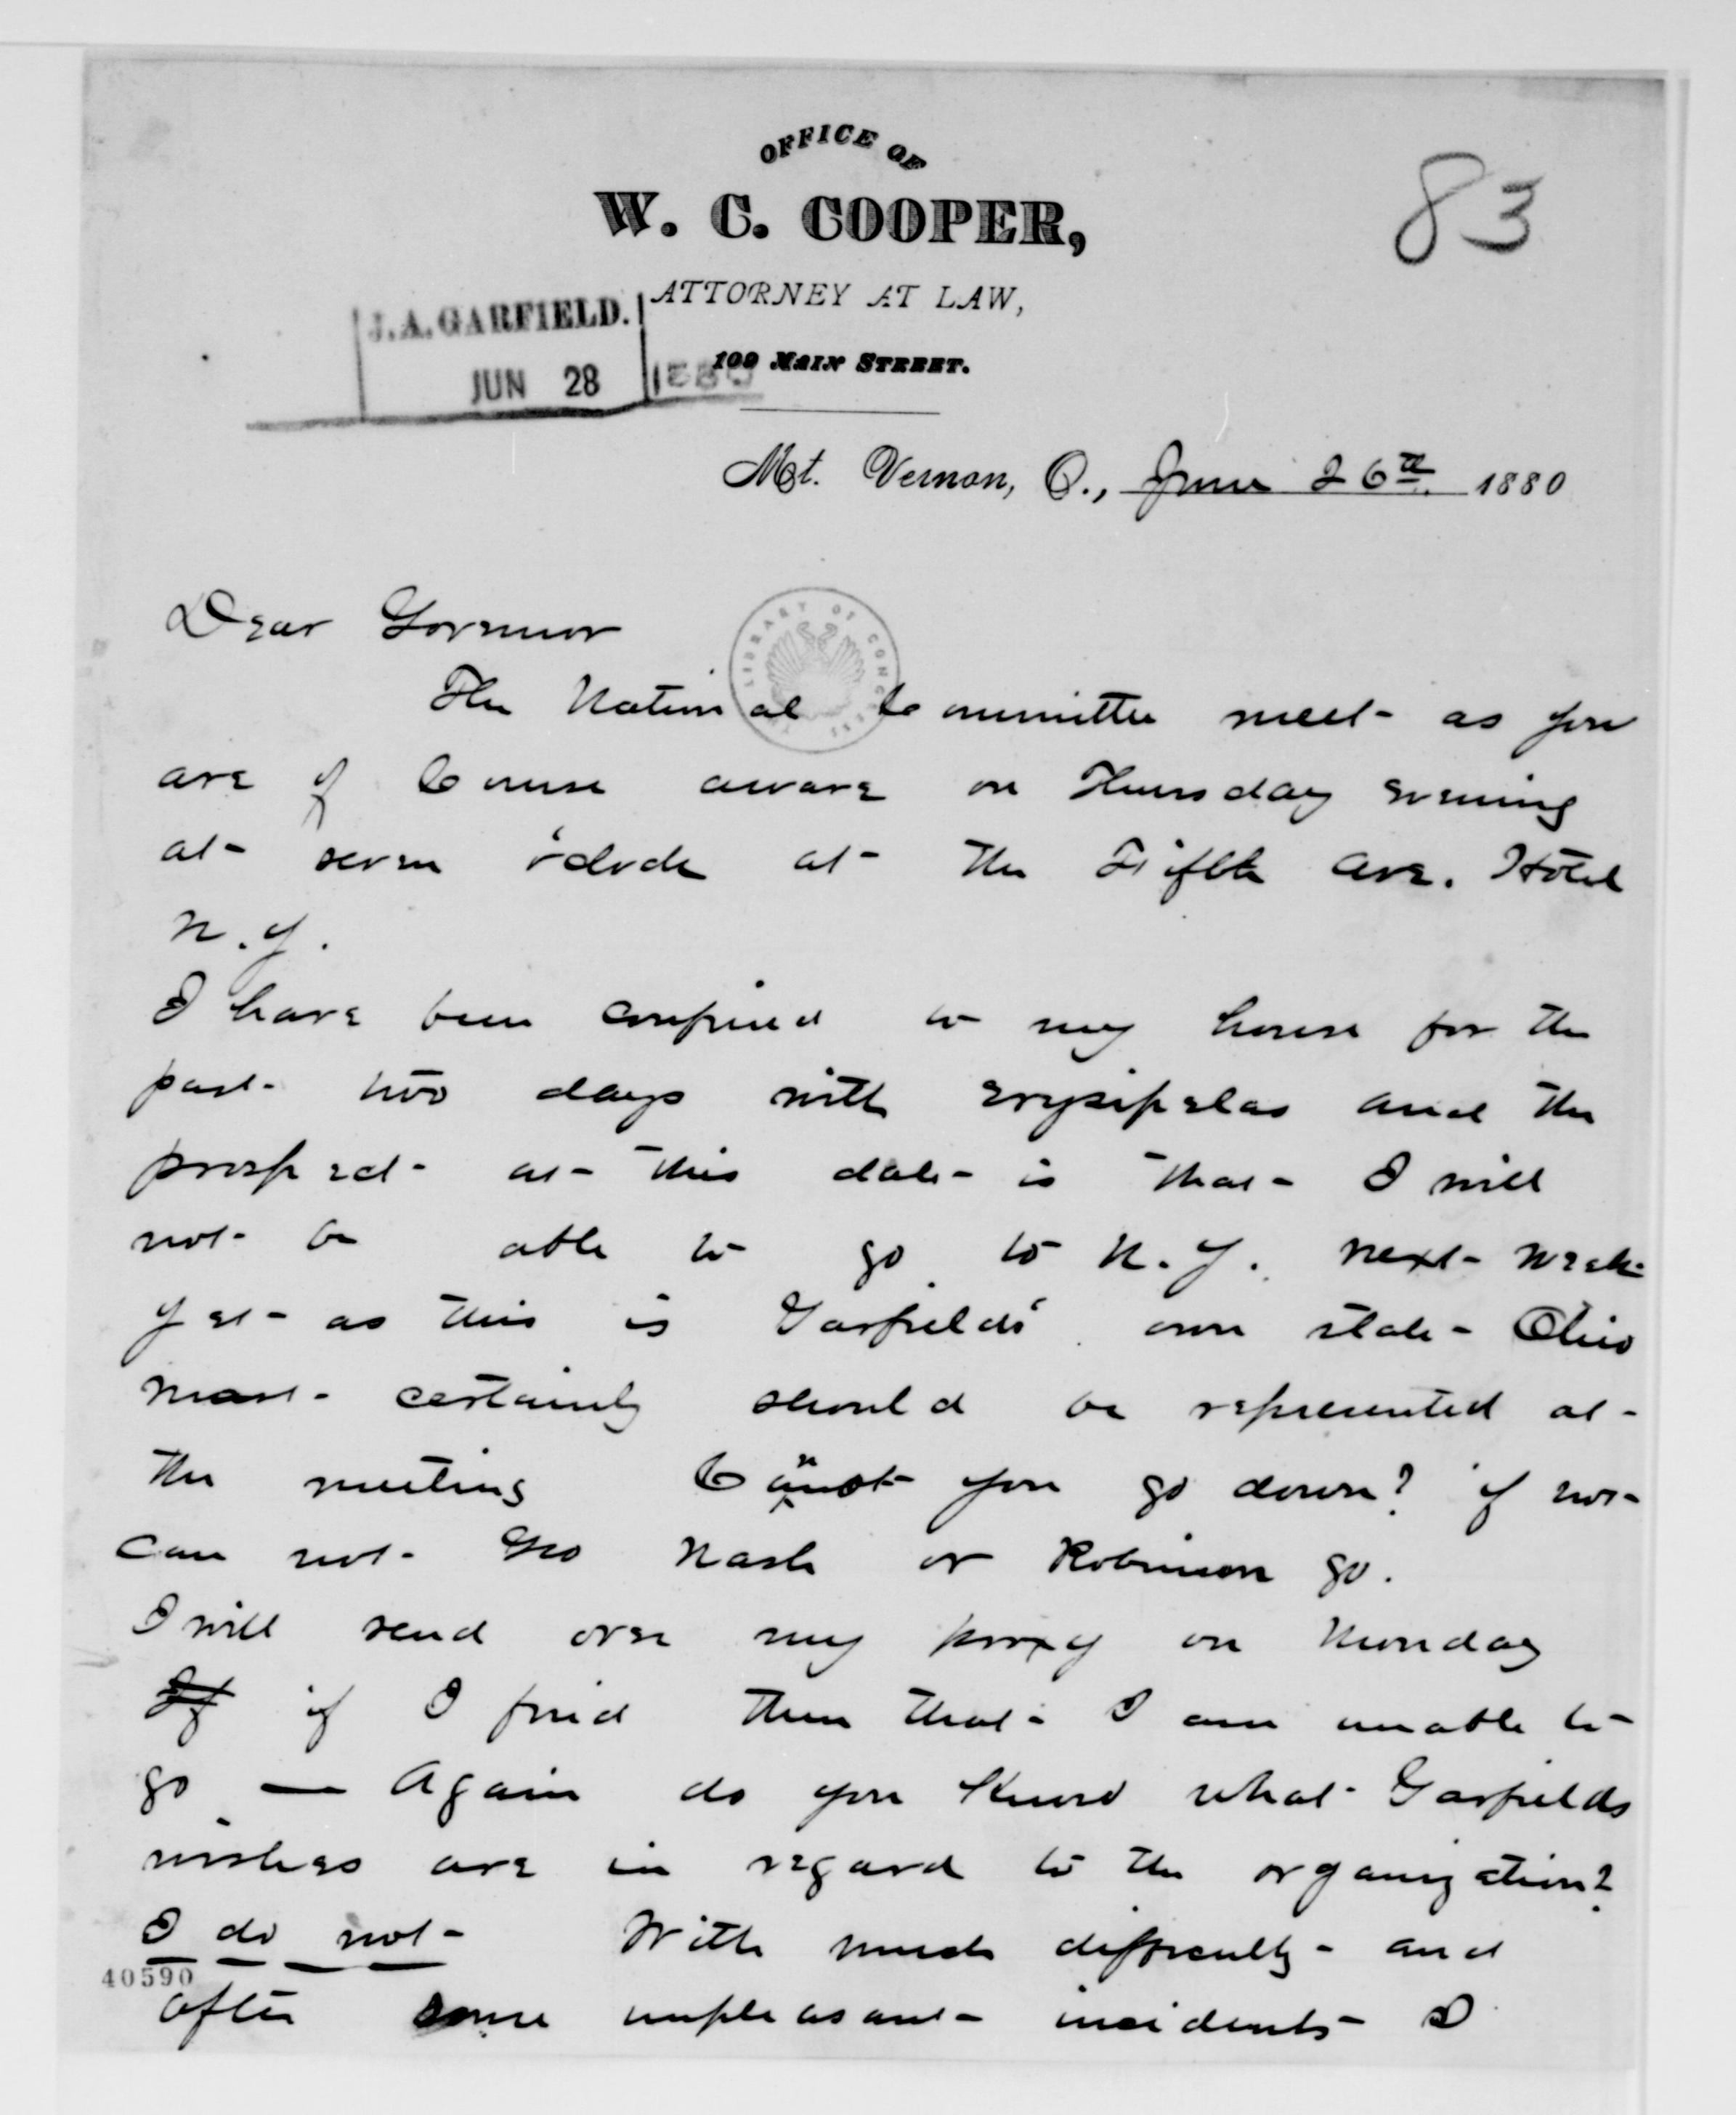 OFFICE OF
83
W. C. COOPER,
ATTORNEY AT LAW,
J.A. GARFIELD.
JUN 28 1880
109 MAIN STREET.
Mt. Vernon, O., June 26th 1880
Dear Governor
LIBRARY OF CONGRESS
The National Committee meet as you
are of Course aware on Thursday evening
at seven o'clock at the Fifth Ave. Hotel
N.Y.
I have been confined to my house for the
past two days with erysipelas and the
prospect at this date is that I will
not be able to go to N.Y. next week
yet as this is Garfields' own state Ohio
most certainly should be represented at
the meeting Cannot you go down? if not
can not Geo Nash or Robinson go.
I will send over my proxy on Monday
If if I find then that I am unable to
go — Again do you know what Garfields
wishes are in regard to the organization?
I do not With much difficulty and
40590
after some unpleasant incidents I